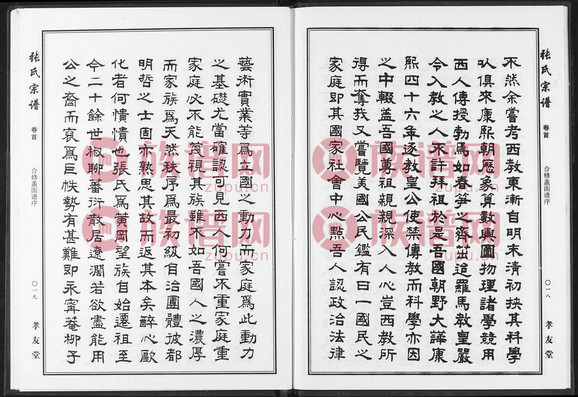 不然余嘗考西教東漸自明末清初挾其科學
以俱來康熙朝歷象算數輿圖物理諸學競用
西人傳授勃焉如春筍之齊出迨羅馬教皇嚴
令入教之人不許拜祖於是吾國朝野大譁康
熙四十六年逐教皇公使禁傳教而科學亦因
之中輟蓋吾國尊祖親親深入人心豈西教所
得而奪我又嘗覽美國公民鑑有曰一國民之
家庭即其國家社會中心點吾人認政治法律
張氏宗譜
卷首
合修蓋面譜序
〇一八
孝友堂
藝術實業等爲立國之動力而家庭爲此動力
之基礎尤當確認可見西人何嘗不重家庭重
家庭必不能蔑視其族雖不如吾國人之濃厚
而家族爲天然秩序爲最初級自治團體彼都
明哲之士固亦熟思其故而返其本矣醉心歐
化者何憒憒也張氏爲黃岡望族自始遷祖至
今二十餘世椒聊蕃衍散居遼濶若欲盡能用
公之裔而裒爲巨帙勢有甚難即永甯菴柳子
張氏宗譜
卷首
合修蓋面譜序
〇一九
孝友堂
族譜网